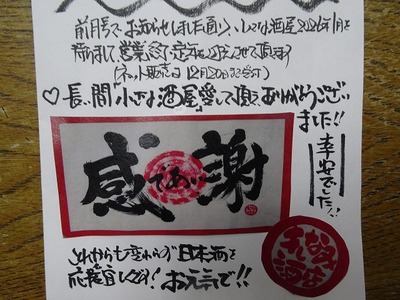 前月号でお知らせしました通り、小さな酒屋2026年1月を
持ちまして営業終了・定年とさせて頂きます
(ネット販売は12月20日まで受付)
♡長い間"小さな酒屋"愛して頂きありがとうござい
ました!!
幸安でした!!
感謝
であい
これからも変わらず日本酒を
応援宜しくお願い! お元気で!!
小さな
酒店